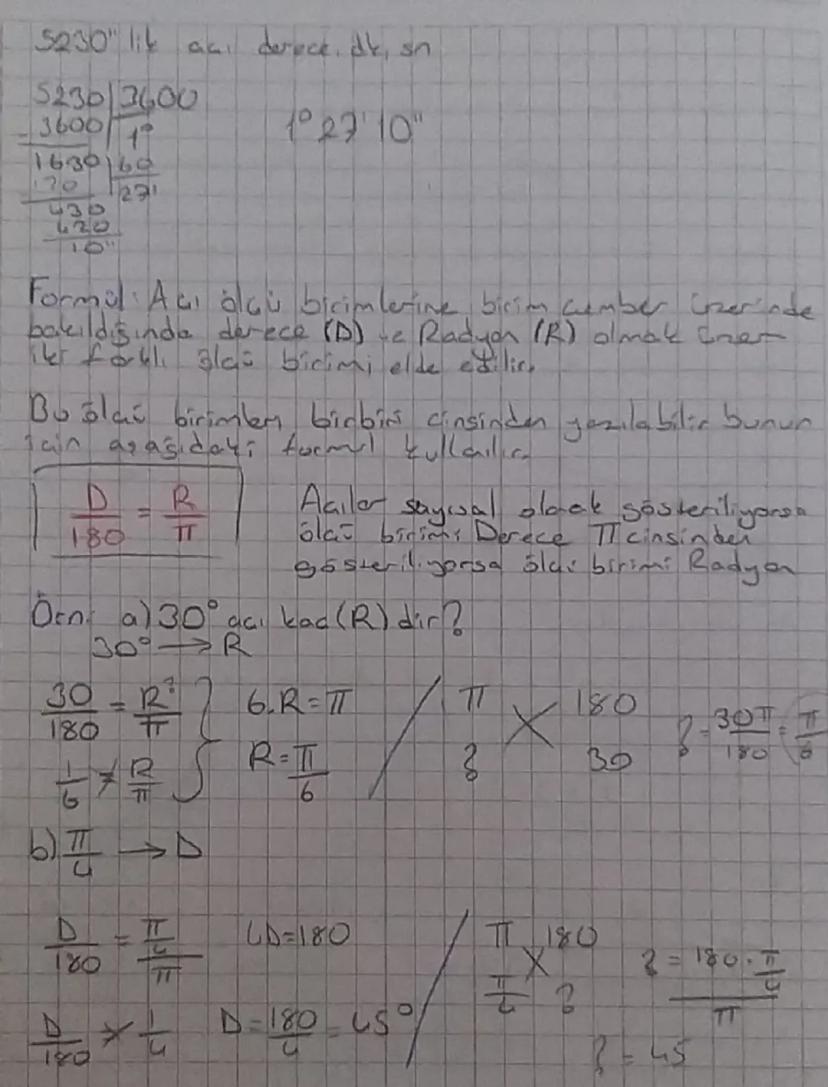 5230" lik açı derece, dk, sn
5230 | 3600
- 3600 | 1°
1630 | 60
120 | 27'
430
420
10"
1° 27' 10"
Formül: Açı ölçü biçimlerine birim çember üzerinde
bakıldığında derece (D) ve Radyan (R) olmak üzere
iki farklı ölçü birimi elde edilir.
Bu ölçü birimleri birbiri cinsinden yazılabilir bunun
için aşağıdaki formül kullanılır
D/180 = R/π
Açılar sayısal olarak gösteriliyorsa
ölçü birimi Derece π cinsinden
gösteriliyorsa ölçü birimi Radyan
Örn: a) 30° açı kaç (R) dir?
30° → R
30/180 = R?/π } 6.R = π
1/6 = R/π } R = π/6
π 180
? 30
? = 30π/180 = π/6
b) π/4 → D
D/180 = π/4/π 4D = 180
D/180 = 1/4 D = 180/4 = 45°
π 180
π/4 ?
? = 180 . π/4 / π
? = 45